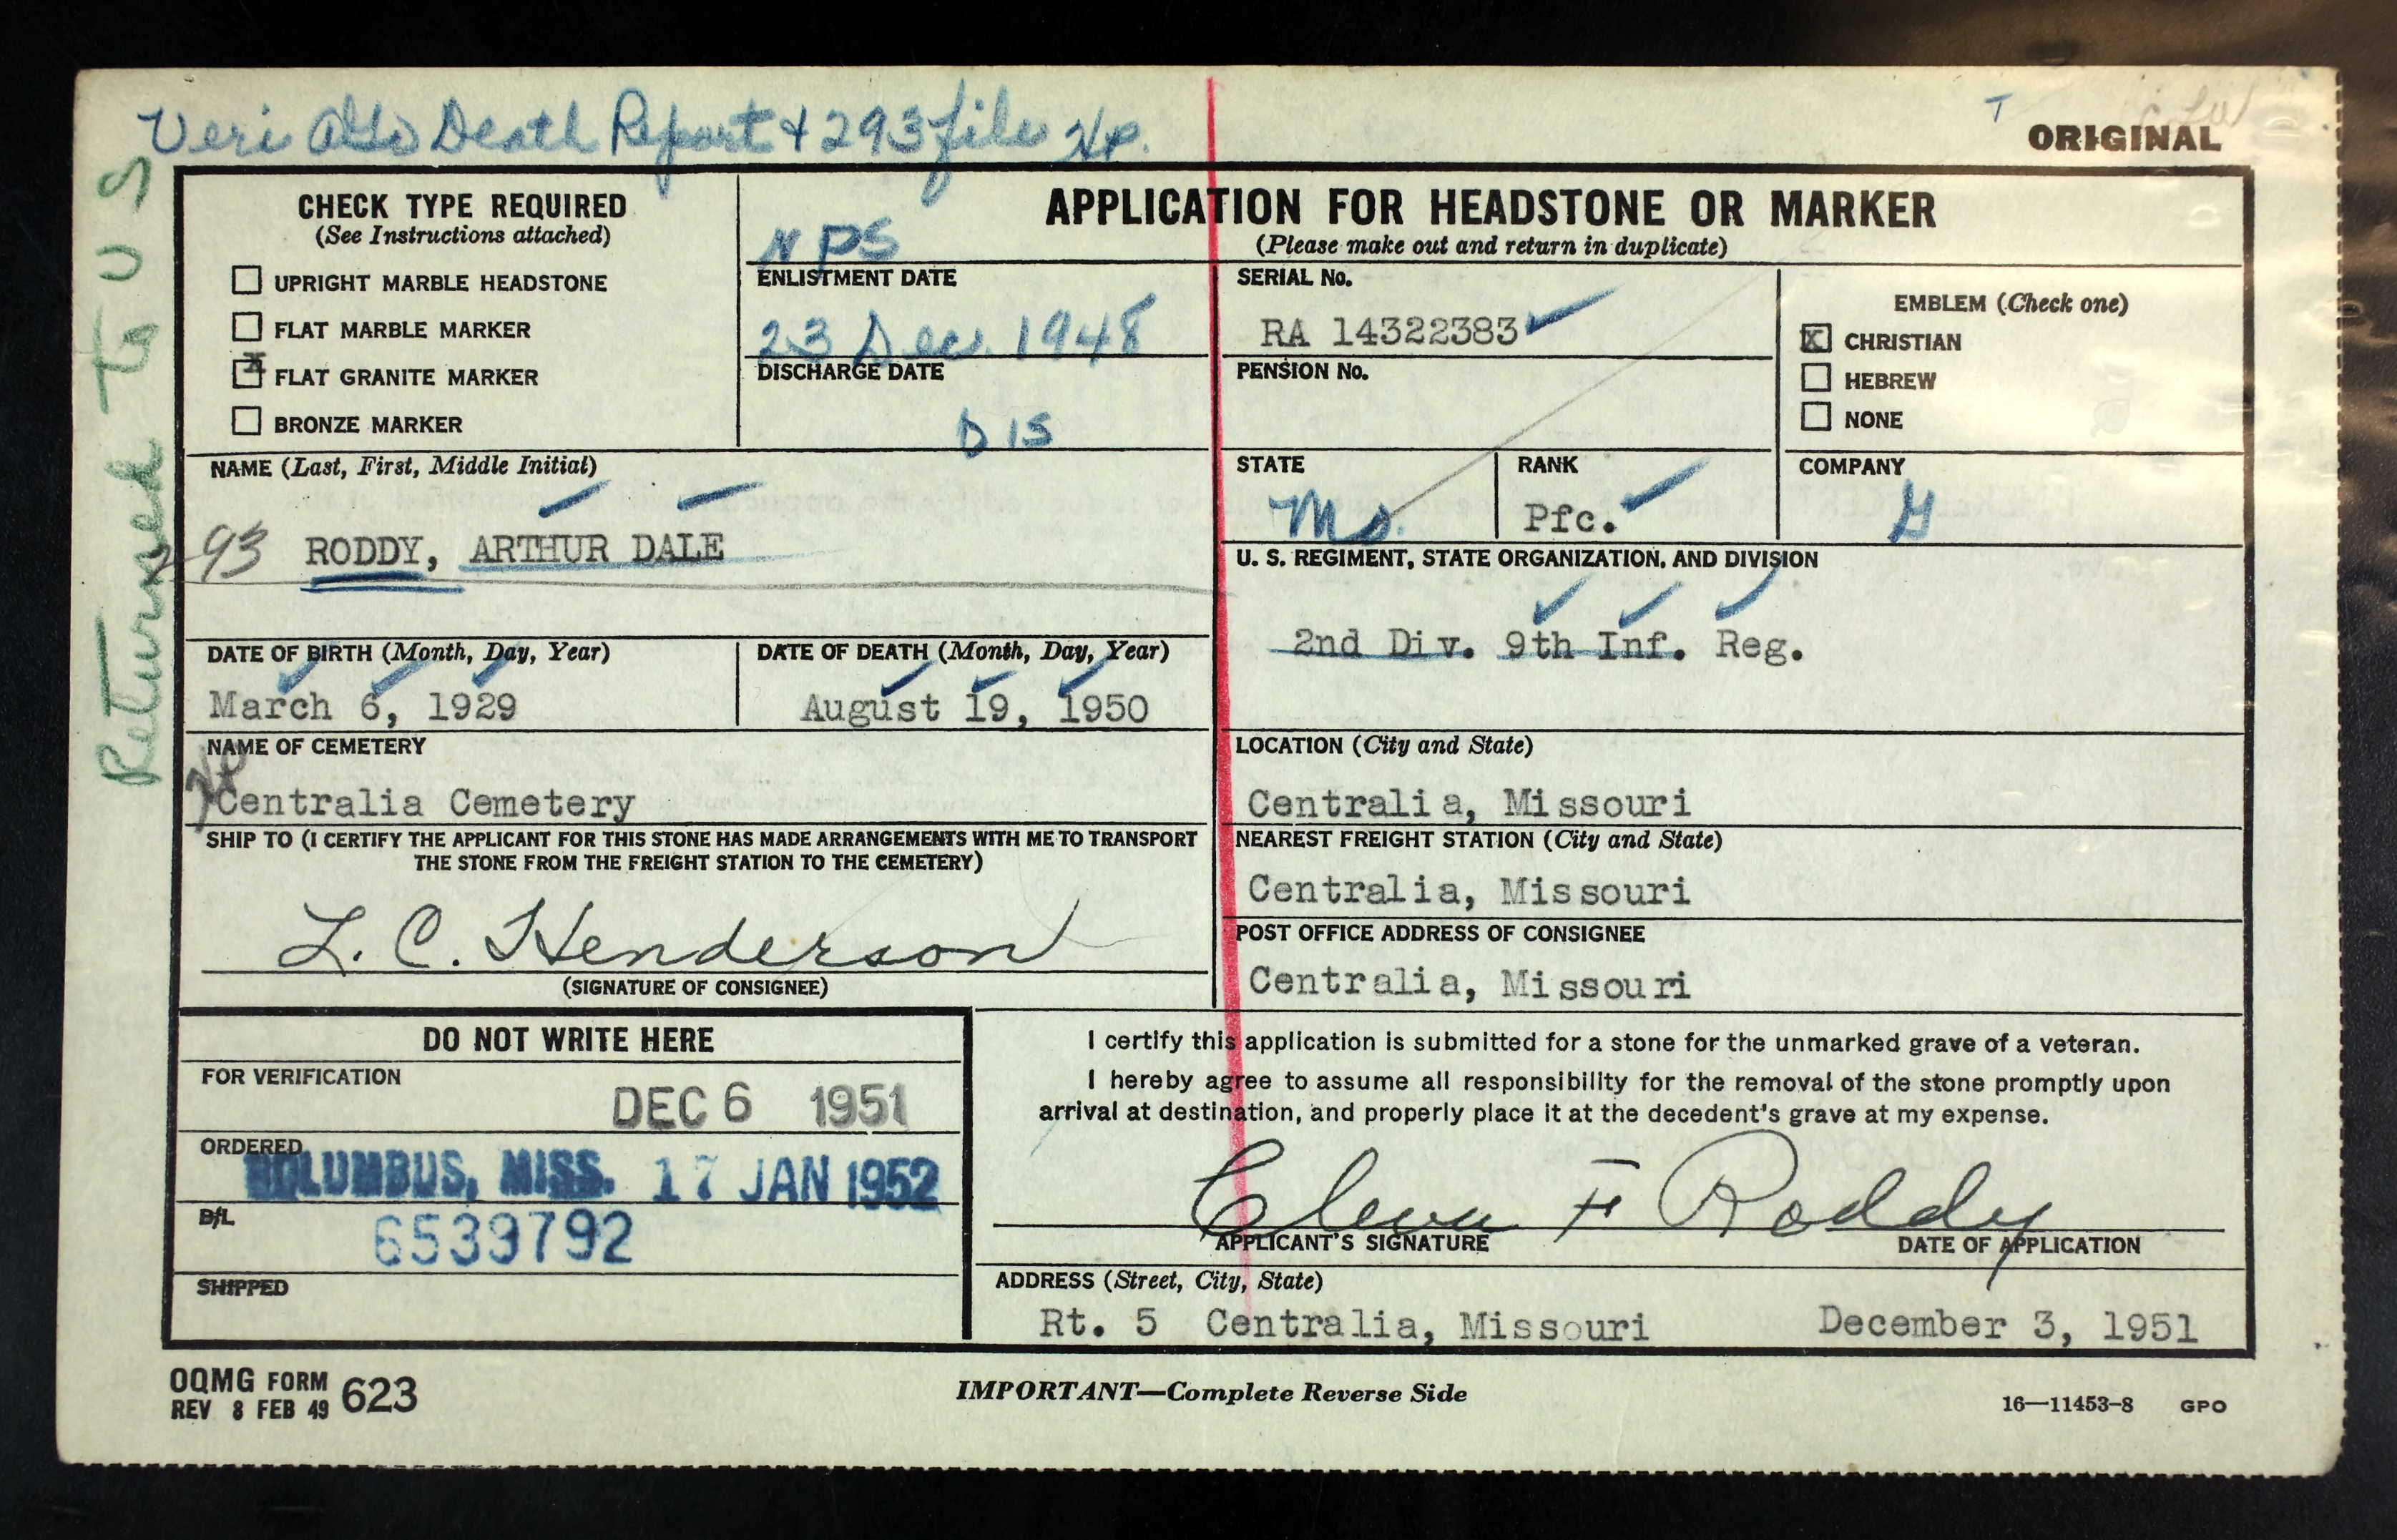 Veri AGO Death Report & 293 file
T
ORIGINAL
Returned to US
CHECK TYPE REQUIRED
(See Instructions attached)
UPRIGHT MARBLE HEADSTONE
FLAT MARBLE MARKER
X FLAT GRANITE MARKER
BRONZE MARKER
APPLICATION FOR HEADSTONE OR MARKER
(Please make out and return in duplicate)
NPS
ENLISTMENT DATE
23 Dec. 1948
DISCHARGE DATE
DIS
SERIAL No.
RA 14322383
PENSION No.
EMBLEM (Check one)
X CHRISTIAN
HEBREW
NONE
NAME (Last, First, Middle Initial)
293 RODDY, ARTHUR DALE
STATE
Mo.
RANK
Pfc.
COMPANY
G
U. S. REGIMENT, STATE ORGANIZATION, AND DIVISION
2nd Div. 9th Inf. Reg.
DATE OF BIRTH (Month, Day, Year)
March 6, 1929
DATE OF DEATH (Month, Day, Year)
August 19, 1950
NAME OF CEMETERY
Centralia Cemetery
LOCATION (City and State)
Centralia, Missouri
SHIP TO (I CERTIFY THE APPLICANT FOR THIS STONE HAS MADE ARRANGEMENTS WITH ME TO TRANSPORT
THE STONE FROM THE FREIGHT STATION TO THE CEMETERY)
L. C. Henderson
(SIGNATURE OF CONSIGNEE)
NEAREST FREIGHT STATION (City and State)
Centralia, Missouri
POST OFFICE ADDRESS OF CONSIGNEE
Centralia, Missouri
DO NOT WRITE HERE
FOR VERIFICATION
DEC 6 1951
ORDERED
COLUMBUS, MISS. 17 JAN 1952
B/L
6539792
SHIPPED
I certify this application is submitted for a stone for the unmarked grave of a veteran.
I hereby agree to assume all responsibility for the removal of the stone promptly upon
arrival at destination, and properly place it at the decedent's grave at my expense.
Cleva F Roddy
APPLICANT'S SIGNATURE
DATE OF APPLICATION
ADDRESS (Street, City, State)
Rt. 5 Centralia, Missouri December 3, 1951
OQMG FORM 623
REV 8 FEB 49
IMPORTANT—Complete Reverse Side
16—11453-8 GPO